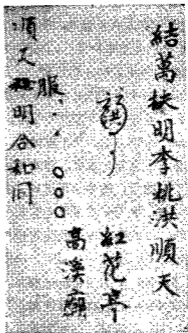 結萬扶明李桃洪順天
紅花亭
高溪廟
服
順天明合和同